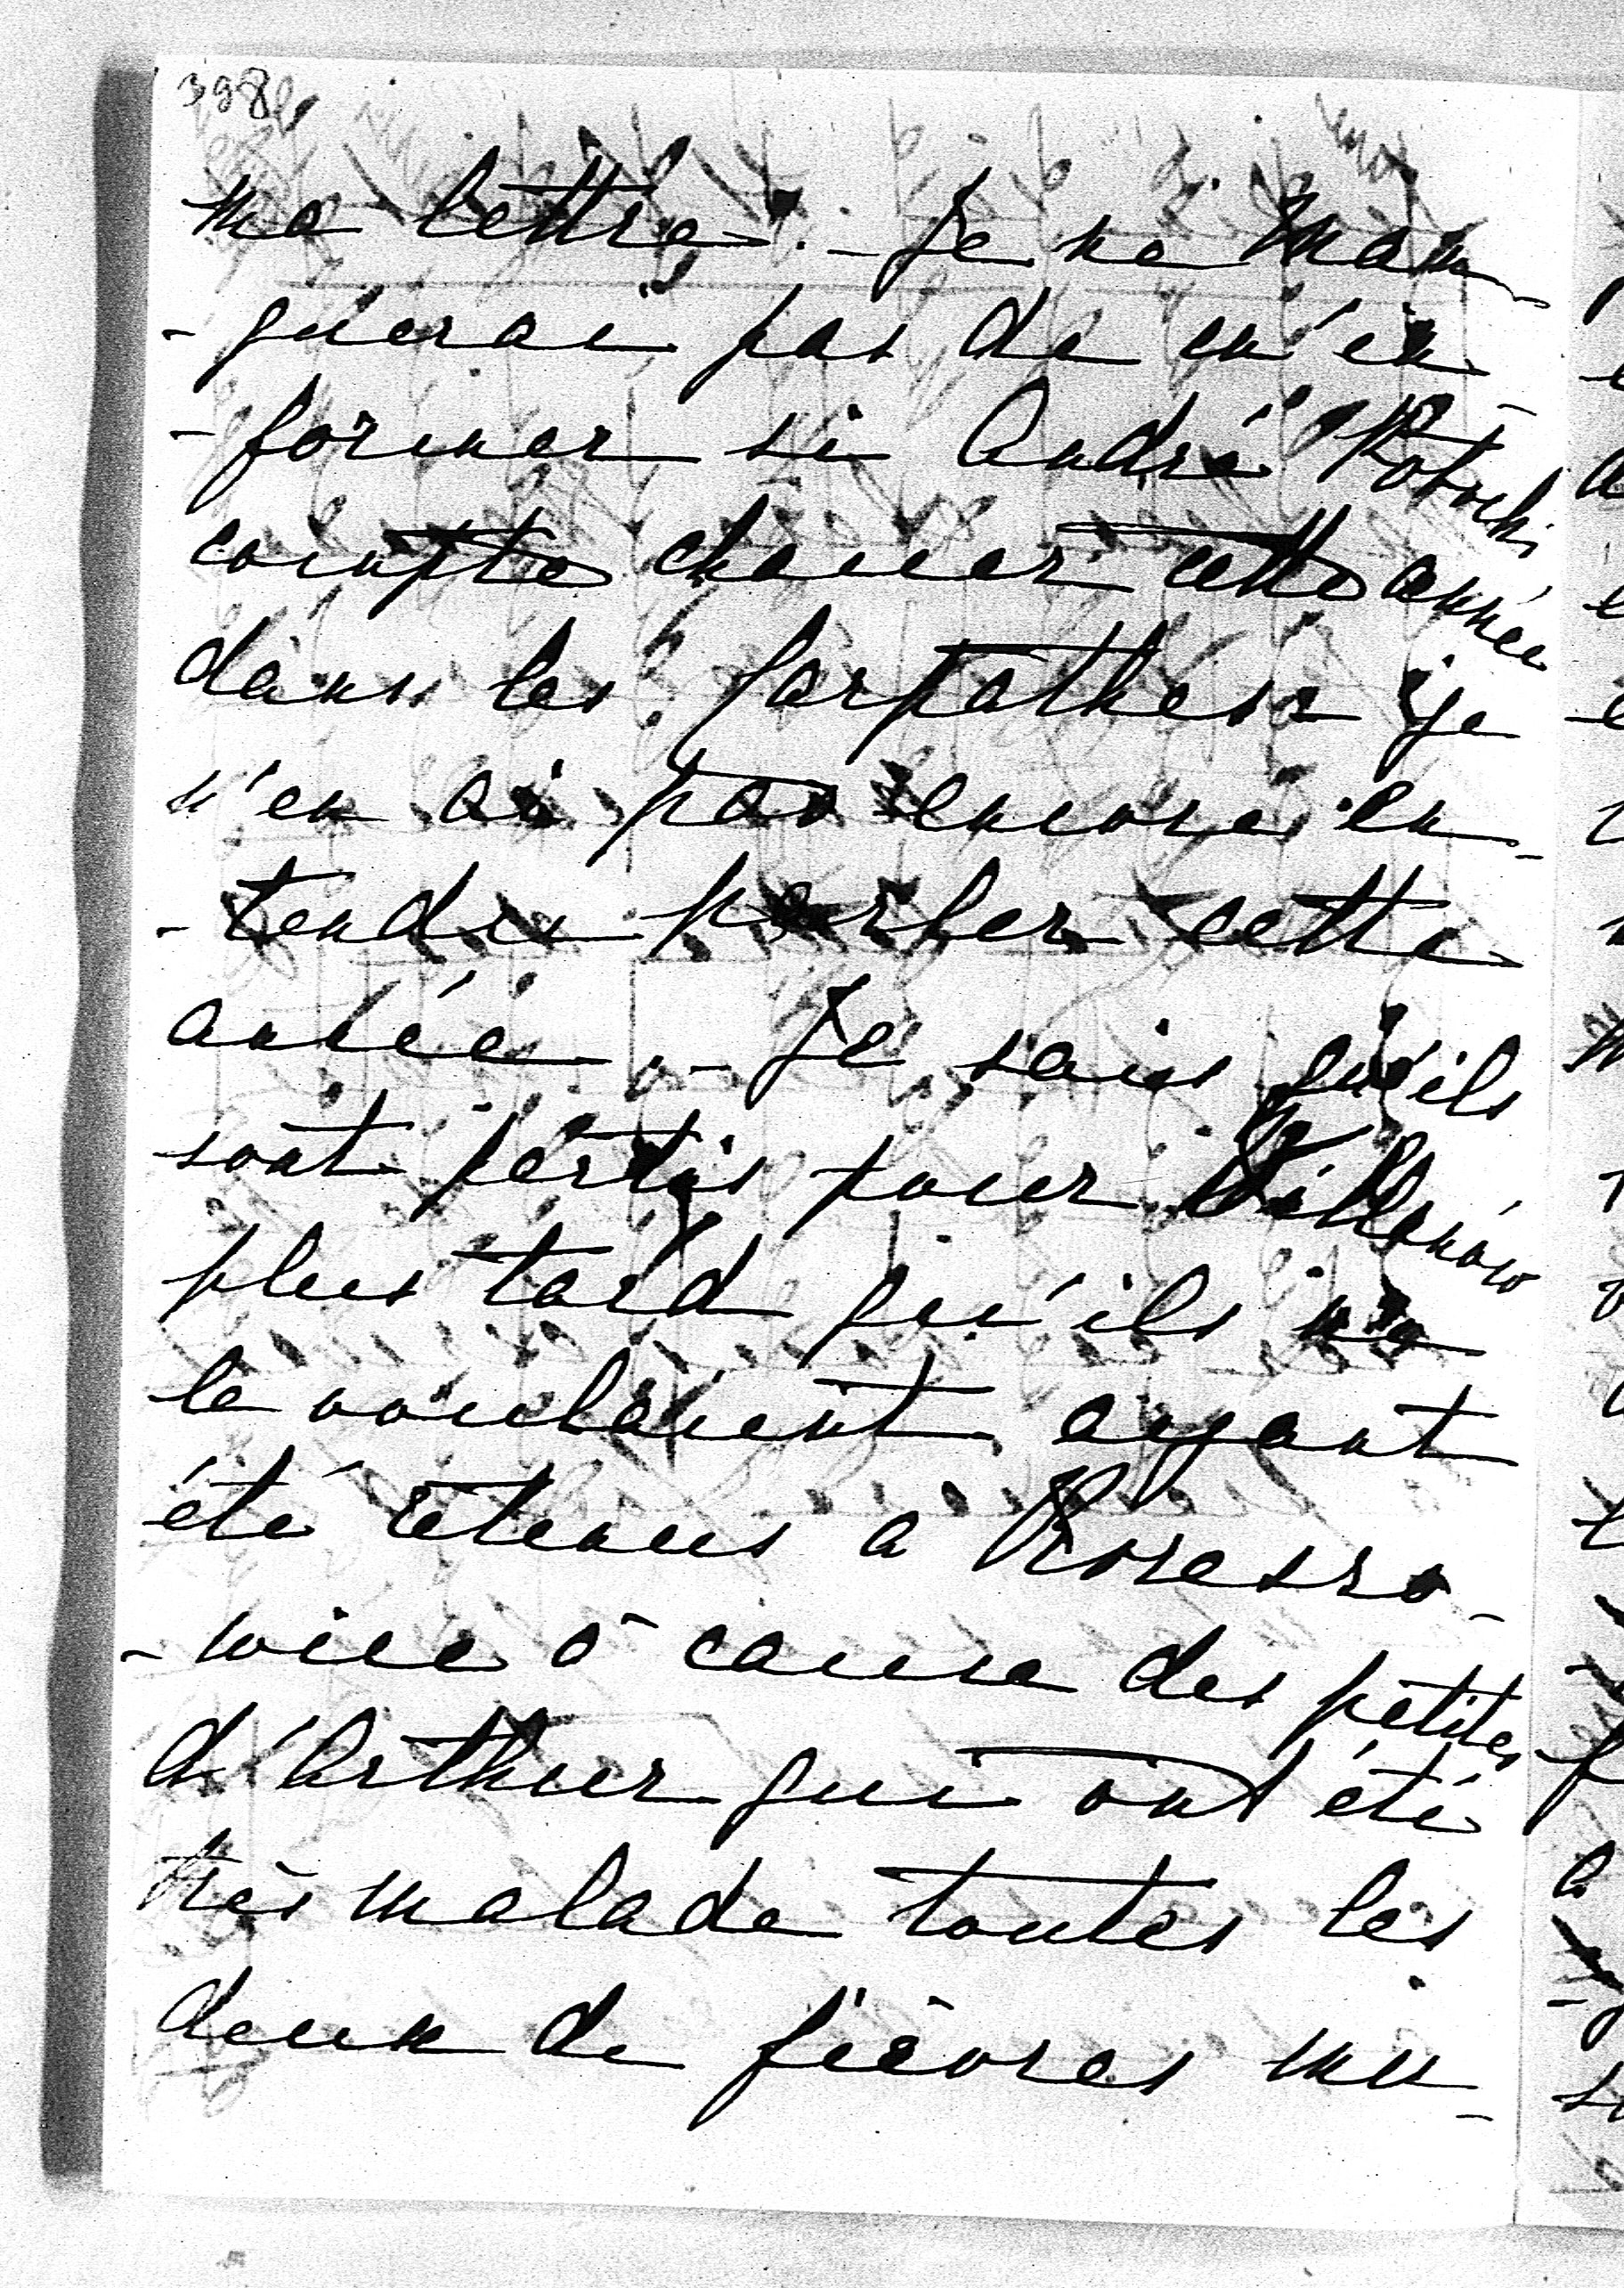 398
ma lettre. - Je ne man-
-querai pas de m'in-
-former si André Potocki
compte chasser cette année
dans les Carpathes - je
n'en ai pas encore en-
-tendu parler cette
année. - Je sais qu'ils
sont partis pour Willanów
plus tard qu'ils ne
le voulaient ayant
été retenus à Krzeszo-
-wice à cause des petites
d'Arthur qui ont été
très malade toutes les
deux de fièvres mu-